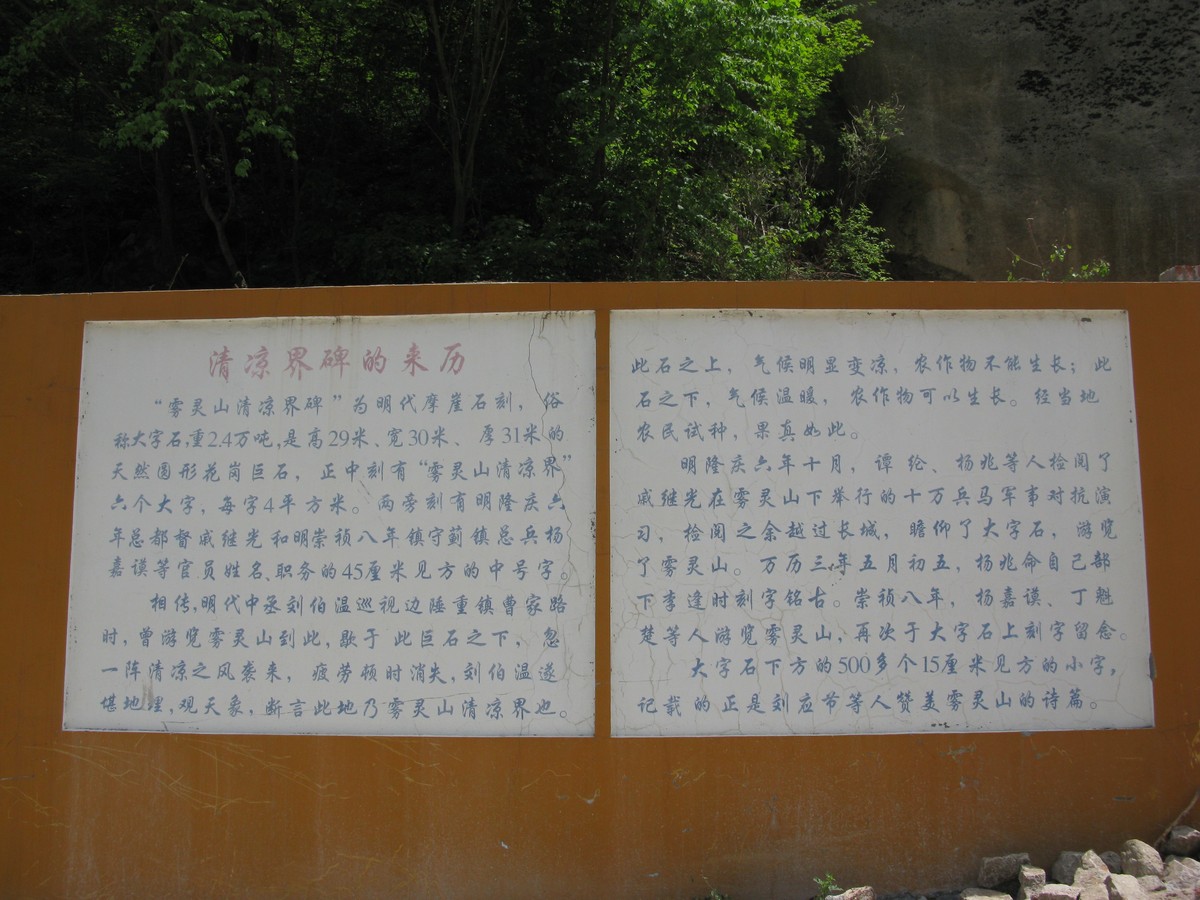 清凉界碑的来历
“雾灵山清凉界碑”为明代摩崖石刻，俗
称大字石，重2.4万吨，是高29米、宽30米、厚31米的
天然圆形花岗巨石，正中刻有“雾灵山清凉界”
六个大字，每字4平方米。两旁刻有明隆庆六
年总都督戚继光和明崇祯八年镇守蓟镇总兵杨
嘉谟等官员姓名、职务的45厘米见方的中号字。
相传，明代中丞刘伯温巡视边陲重镇曹家路
时，曾游览雾灵山到此，歇于此巨石之下，忽
一阵清凉之风袭来，疲劳顿时消失，刘伯温遂
堪地理，观天象，断言此地乃雾灵山清凉界也。
此石之上，气候明显变凉，农作物不能生长；此
石之下，气候温暖，农作物可以生长。经当地
农民试种，果真如此。
明隆庆六年十月，谭纶、杨兆等人检阅了
戚继光在雾灵山下举行的十万兵马军事对抗演
习，检阅之余越过长城，瞻仰了大字石，游览
了雾灵山。万历三年五月初五，杨兆命自己部
下李逢时刻字铭古。崇祯八年，杨嘉谟、丁魁
楚等人游览雾灵山，再次于大字石上刻字留念。
大字石下方的500多个15厘米见方的小字，
记载的正是刘应节等人赞美雾灵山的诗篇。